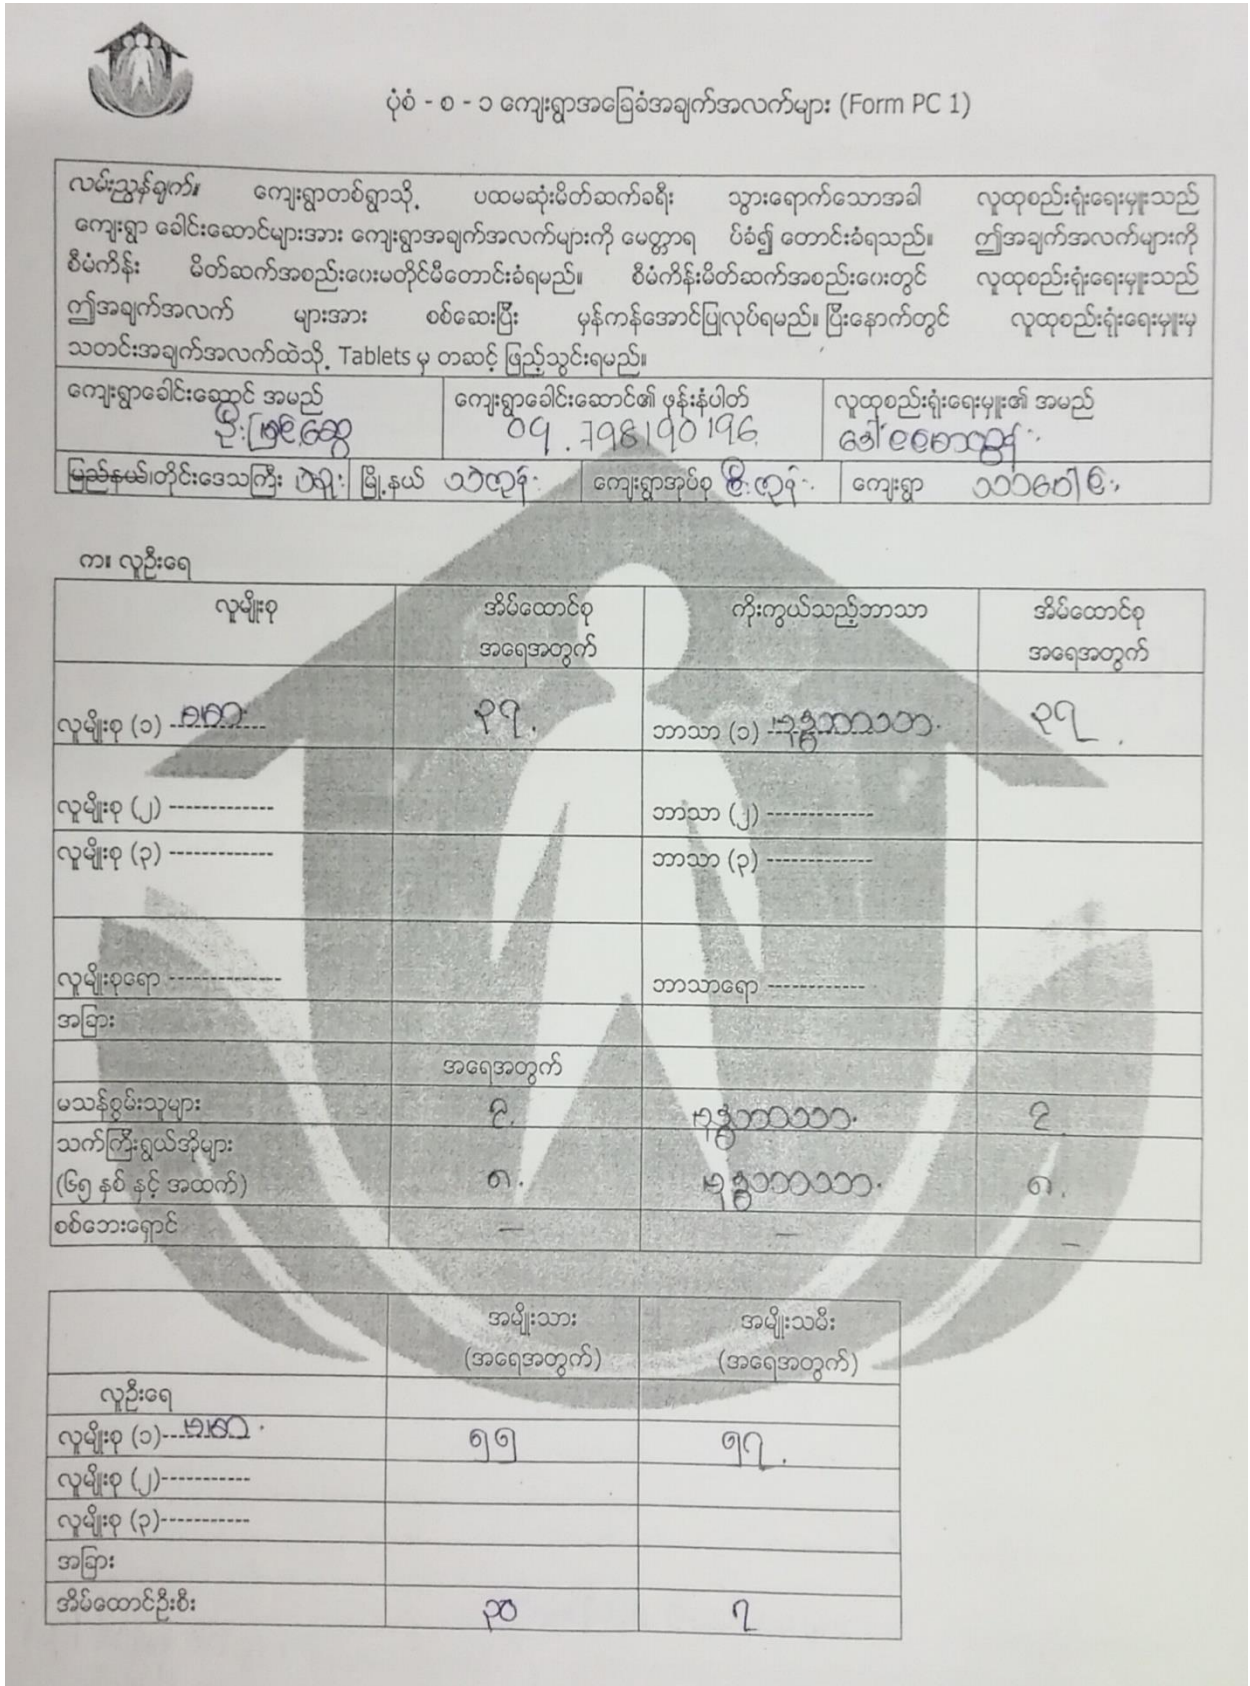 ပုံစံ - စ - ၁ ကျေးရွာအခြေခံအချက်အလက်များ (Form PC 1)
လမ်းညွှန်ချက်။ ကျေးရွာတစ်ရွာသို့ ပထမဆုံးမိတ်ဆက်ခရီး သွားရောက်သောအခါ လူထုစည်းရုံးရေးမှူးသည်
ကျေးရွာ ခေါင်းဆောင်များအား ကျေးရွာအချက်အလက်များကို မေတ္တာရ ပ်ခံ၍ တောင်းခံရသည်။ ဤအချက်အလက်များကို
စီမံကိန်း မိတ်ဆက်အစည်းဝေးမတိုင်မီတောင်းခံရမည်။ စီမံကိန်းမိတ်ဆက်အစည်းဝေးတွင် လူထုစည်းရုံးရေးမှူးသည်
ဤအချက်အလက် များအား စစ်ဆေးပြီး မှန်ကန်အောင်ပြုလုပ်ရမည်။ ပြီးနောက်တွင် လူထုစည်းရုံးရေးမှူးမှ
သတင်းအချက်အလက်ထဲသို့ Tablets မှ တဆင့် ဖြည့်သွင်းရမည်။
ကျေးရွာခေါင်းဆောင် အမည် ကျေးရွာခေါင်းဆောင်၏ ဖုန်းနံပါတ် လူထုစည်းရုံးရေးမှူး၏ အမည်
ဦး 09.798190196
ပြည်နယ်/တိုင်းဒေသကြီး ပဲခူး မြို့နယ် သဲကုန်း ကျေးရွာအုပ်စု ကျေးရွာ
က။ လူဦးရေ
လူမျိုးစု အိမ်ထောင်စု ကိုးကွယ်သည့်ဘာသာ အိမ်ထောင်စု
အရေအတွက် အရေအတွက်
လူမျိုးစု (၁) ဗမာ ၃၇. ဘာသာ (၁) ဗုဒ္ဓဘာသာ ၃၇.
လူမျိုးစု (၂) ------------- ဘာသာ (၂) -------------
လူမျိုးစု (၃) ------------- ဘာသာ (၃) -------------
လူမျိုးစုရော -------------- ဘာသာရော ------------
အခြား
အရေအတွက်
မသန်စွမ်းသူများ ၃. ဗုဒ္ဓဘာသာ. ၃.
သက်ကြီးရွယ်အိုများ
(၆၅ နှစ် နှင့် အထက်) ၈. ဗုဒ္ဓဘာသာ. ၈.
စစ်ဘေးရှောင် – – –
အမျိုးသား အမျိုးသမီး
(အရေအတွက်) (အရေအတွက်)
လူဦးရေ
လူမျိုးစု (၁)---ဗမာ. ၅၅ ၅၇.
လူမျိုးစု (၂)-----------
လူမျိုးစု (၃)-----------
အခြား
အိမ်ထောင်ဦးစီး ၃၀ ၇